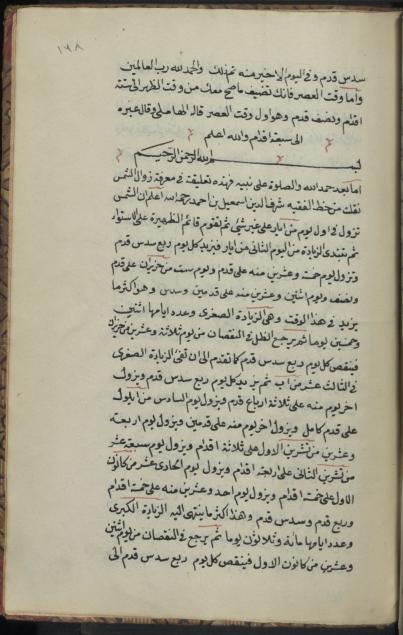 ١٩٨
سدس قدم وفي اليوم الاخير منه تم ذلك والحمد لله رب العالمين
واما وقت العصر فانك تضيف ما صح معك من وقت الظهر الى ستة
اقدام ونصف قدم وهو اول وقت العصر قاله المهاملى وقال غيره
الى سبعة اقدام والله اعلم
بسم الله الرحمن الرحيم
اما بعد حمد الله والصلوة على نبيه فهذه تعليقة في معرفة زوال الشمس
نقلت من خط الفقيه شرف الدين اسمعيل بن احمد رحمه الله اعلم ان الشمس
تزول في اول يوم من ايار على غير شئ ثم تقوم قائم الظهيرة على الاستواء
ثم يبتدى الزيادة من اليوم الثاني من ايار فيزيد كل يوم ربع سدس قدم
وتزول يوم خمسة وعشرين منه على قدم ويوم ست من حزيران على قدم
ونصف ويوم اثنين وعشرين منه على قدمين وسدس وهو اكثر ما
يزيد في هذا الوقت وهي الزيادة الصغرى وعدد ايامها اثنين
وخمسين يوما ثم يرجع الظل في النقصان من يوم ثلاثة وعشرين من حزيران
فينقص كل يوم ربع سدس قدم كما تقدم الى ان تفنى الزيادة الصغرى
في الثالث عشر من اب ثم يزيد كل يوم ربع سدس قدم ويزول
اخر يوم منه على ثلاثة ارباع قدم ويزول يوم السادس من ايلول
على قدم كامل ويزول اخر يوم منه على قدمين ويزول يوم اربعة
وعشرين من تشرين الاول على ثلاثة اقدام ويزول يوم سبعة عشر
من تشرين الثاني على اربعة اقدام ويزول يوم الحادى عشر من كانون
الاول على خمسة اقدام ويزول يوم احد وعشرين منه على خمسة اقدام
وربع قدم وسدس قدم وهذا اكثر ما ينتهى اليه الزيادة الكبرى
وعدد ايامها مائة وثلاثون يوما ثم يرجع في النقصان من يوم اثنين
وعشرين من كانون الاول فينقص كل يوم ربع سدس قدم الى